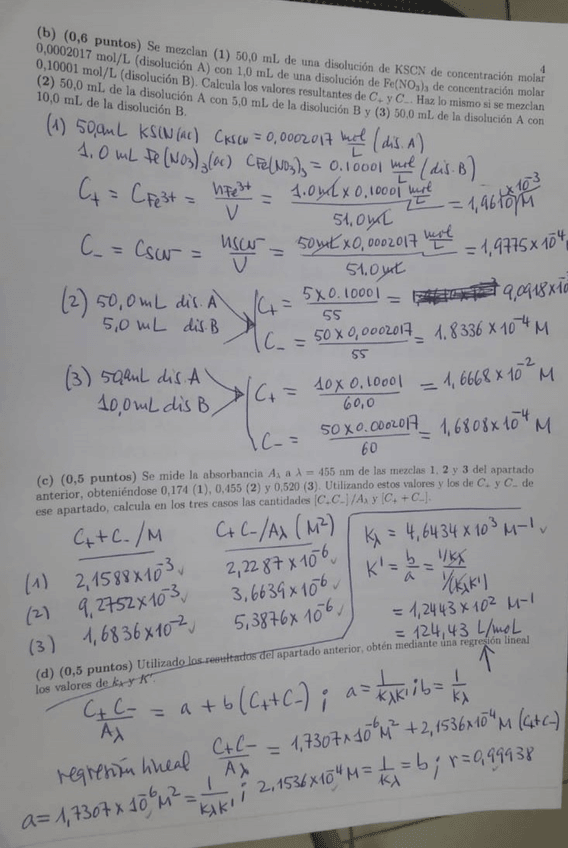 4
(b) (0,6 puntos) Se mezclan (1) 50,0 mL de una disolución de KSCN de concentración molar
0,0002017 mol/L (disolución A) con 1,0 mL de una disolución de Fe(NO₃)₃ de concentración molar
0,10001 mol/L (disolución B). Calcula los valores resultantes de C₊ y C₋. Haz lo mismo si se mezclan
(2) 50,0 mL de la disolución A con 5,0 mL de la disolución B y (3) 50,0 mL de la disolución A con
10,0 mL de la disolución B.
(1) 50,0mL KSCN(ac) C_KSCN = 0,0002017 mol/L (dis. A)
1.0 mL Fe(NO₃)₃(ac) C_Fe(NO₃)₃ = 0.10001 mol/L (dis. B)
C₊ = C_Fe³⁺ = n_Fe³⁺/V = 1.0mL x 0,10001 mol/L / 51.0mL = 1,9610 x 10⁻³ M
C₋ = C_SCN⁻ = n_SCN⁻/V = 50mL x 0,0002017 mol/L / 51.0mL = 1,9775 x 10⁻⁴
(2) 50,0 mL dis. A
5,0 mL dis. B
C₊ = 5 x 0.10001 / 55 = 9,0918 x 10
C₋ = 50 x 0,0002017 / 55 = 1.8336 x 10⁻⁴ M
(3) 50,0mL dis. A
10,0mL dis B
C₊ = 10 x 0.10001 / 60,0 = 1,6668 x 10⁻² M
C₋ = 50 x 0.0002017 / 60 = 1,6808 x 10⁻⁴ M
(c) (0,5 puntos) Se mide la absorbancia A_λ a λ = 455 nm de las mezclas 1, 2 y 3 del apartado
anterior, obteniéndose 0,174 (1), 0,455 (2) y 0,520 (3). Utilizando estos valores y los de C₊ y C₋ de
ese apartado, calcula en los tres casos las cantidades [C₊C₋]/A_λ y [C₊ + C₋].
C₊+C₋/M C₊C₋/A_λ (M²)
(1) 2,1588x10⁻³ 2,2287x10⁻⁶ ✓
(2) 9,2752x10⁻³ 3,6639x10⁻⁶ ✓
(3) 1,6836x10⁻² 5,3876x10⁻⁶ ✓
K_λ = 4,6434 x 10³ M⁻¹ ✓
K' = b/a = (1/K_λ)/(1/(K_λK'))
= 1,2443x10² M⁻¹
= 124,43 L/mol
(d) (0,5 puntos) Utilizado los resultados del apartado anterior, obtén mediante una regresión lineal
los valores de k_λ y K'.
C₊C₋/A_λ = a + b(C₊+C₋) ; a = 1/(K_λK') ; b = 1/K_λ
regresión lineal C₊C₋/A_λ = 1,7307x10⁻⁶M² + 2,1536x10⁻⁴M (C₊+C₋)
a = 1,7307x10⁻⁶M² = 1/(K_λK') ; 2,1536x10⁻⁴M = 1/K_λ = b ; r = 0,99938